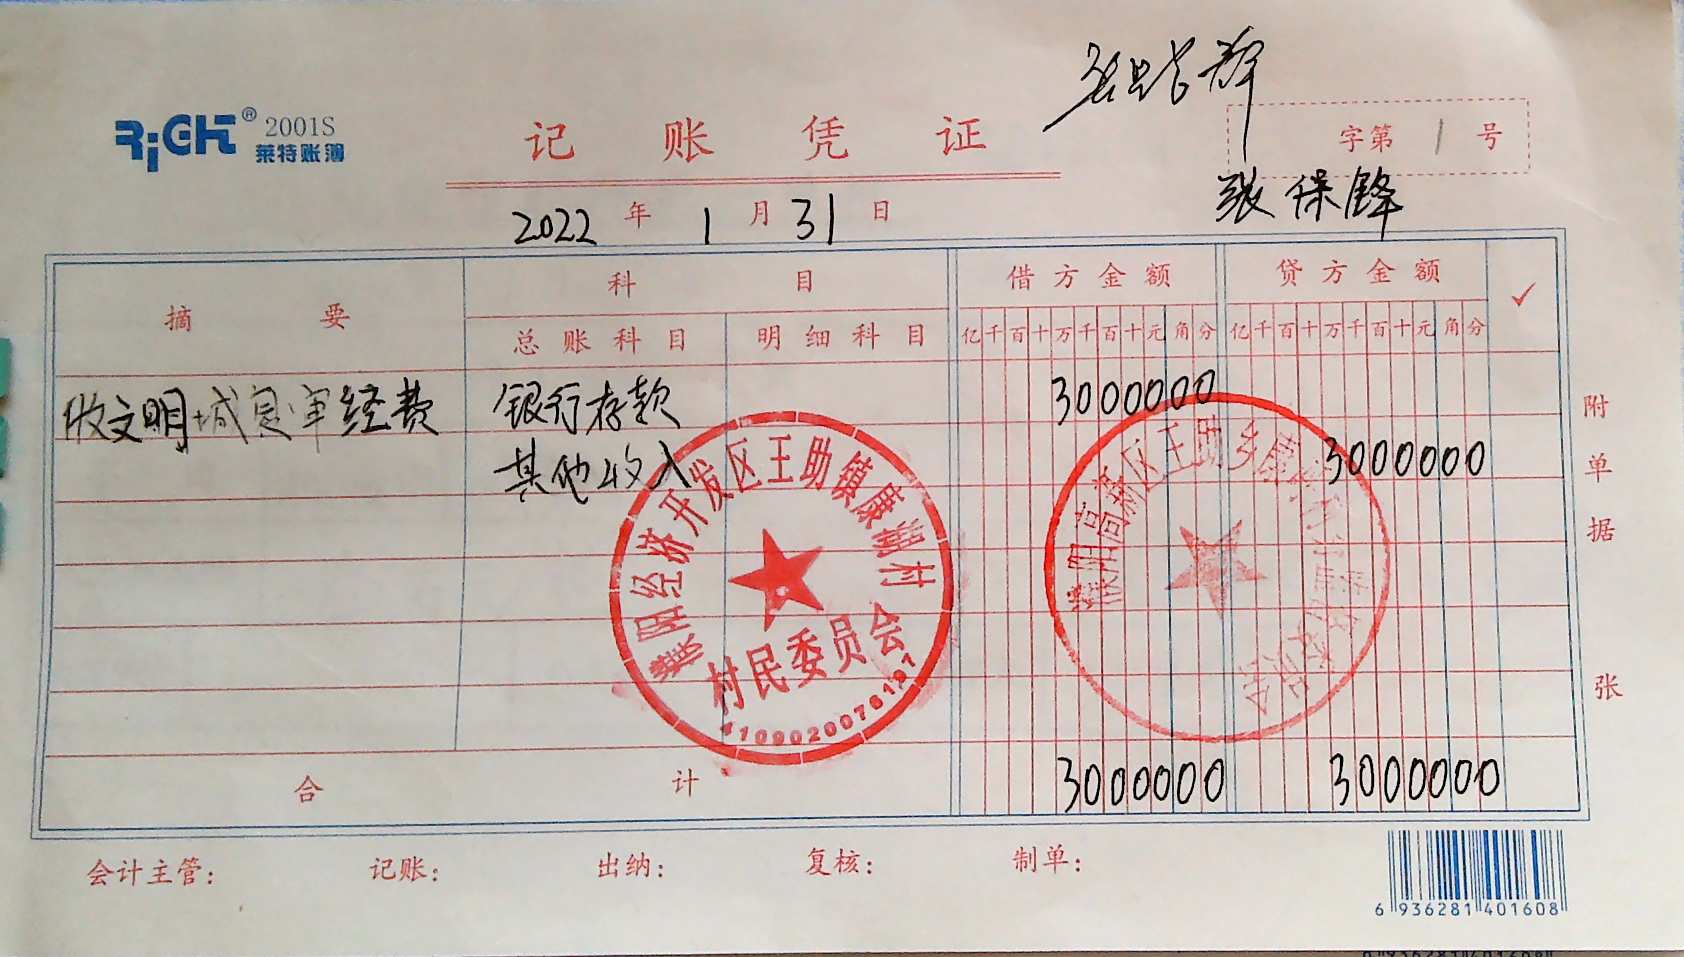 RiGHT® 2001S
莱特账簿
记账凭证
字第 1 号
张保锋
2022 年 1 月 31 日
摘要 科目 借方金额 贷方金额 ✓
总账科目 明细科目 亿千百十万千百十元角分 亿千百十万千百十元角分
收文明城 经费 银行存款 3000000
其他收入 3000000
濮阳经济开发区王助镇康湖村
村民委员会
4109020076197
濮阳高新区王助乡康湖村
合计 3000000 3000000
附单据 张
会计主管： 记账： 出纳： 复核： 制单：
6 936281 401608